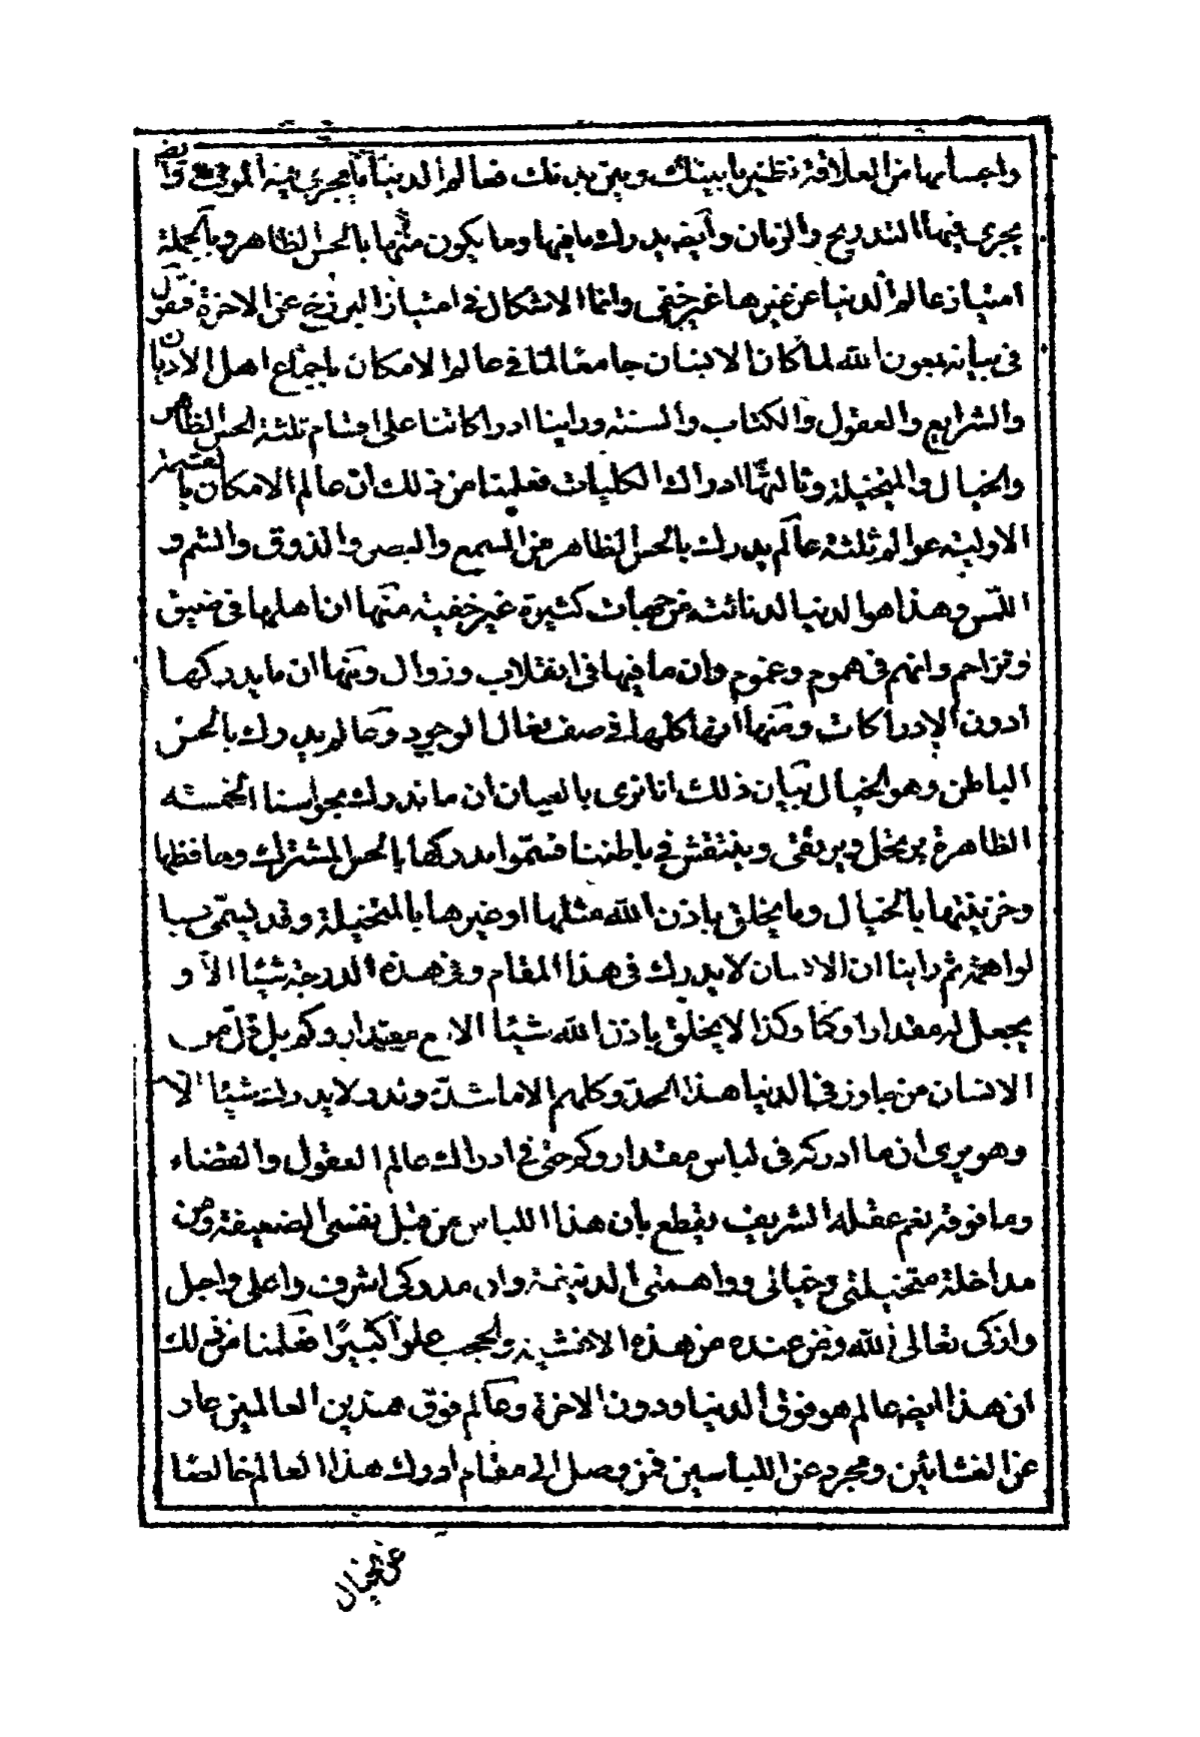 واجسامها من العلاقة نظير ما بينك وبين بدنك فعالم الدنيا ما يجرى فيه الموت وايض
يجرى فيها التدريج والزمان وايضه يدرك ما فيها وما يكون منها بالحس الظاهر وبالجملة
امتياز عالم الدنيا عن غيرها غير خفى وانما الاشكال فى امتياز البرزخ عن الاخرة فنقول
فى بيانه بعون الله لما كان الانسان جامعا لما فى عالم الامكان باجماع اهل الاديان
والشرايع والعقول والكتاب والسنة وراينا ادراكاتنا على اقسام ثلثة الحس الظاهر
والخيال والمتخيلة وثالثها ادراك الكليات فعلمنا من ذلك ان عالم الامكان بالقسمة
الاولية عوالم ثلثة عالم يدرك بالحس الظاهر من السمع والبصر والذوق والشم و
اللمس وهذا هو الدنيا لدنائته من جهات كثيرة غير خفية منها ان اهلها فى ضيق
وتزاحم وانهم فى هموم وغموم وان ما فيها فى انقلاب وزوال ومنها ان ما يدركها
ادون الادراكات ومنها انها كلها فى صف نعال الوجود وعالم يدرك بالحس
الباطن وهو الخيال بيان ذلك انا نرى بالعيان ان ما ندرك بحواسنا الخمسة
الظاهرة يدخل ويرتقى وينتقش فى باطننا فسموا مدركها بالحس المشترك وحافظها
وخزينتها بالخيال وما يخلق باذن الله مثلها او غيرها بالمتخيلة وقد يسمى
لواهمة ثم راينا ان الانسان لا يدرك فى هذا المقام وفى هذه الدرجة شيئا الا و
يجعل له مقدارا وكما وكذا لا يخلق باذن الله شيئا الا مع مقدار وكم بل قل من
الانسان من جاوز فى الدنيا هذا الحد وكلهم الا ما شذ وندر لا يدرك شيئا الا
وهو يرى ان ما ادركه فى لباس مقدار وكم حتى فى ادراك عالم العقول والقضاء
وما فوقه نعم عقله الشريف يقطع بان هذا اللباس من قبل نفسى الضعيفة ومن
مداخلة متخيلتى وخيالى وواهمتى الدنية وان مدركى اشرف واعلى واجل
وازكى تعالى الله ومن عنده من هذه الاغشية والحجب علوا كبيرا فعلمنا من ذلك
ان هذا ايضه عالم هو فوق الدنيا ودون الاخرة وعالم فوق هذين العالمين عار
عن الغشائين ومجرد عن اللباسين فمن وصل الى مقام ادرك هذا العالم خالصا
عن الخيال